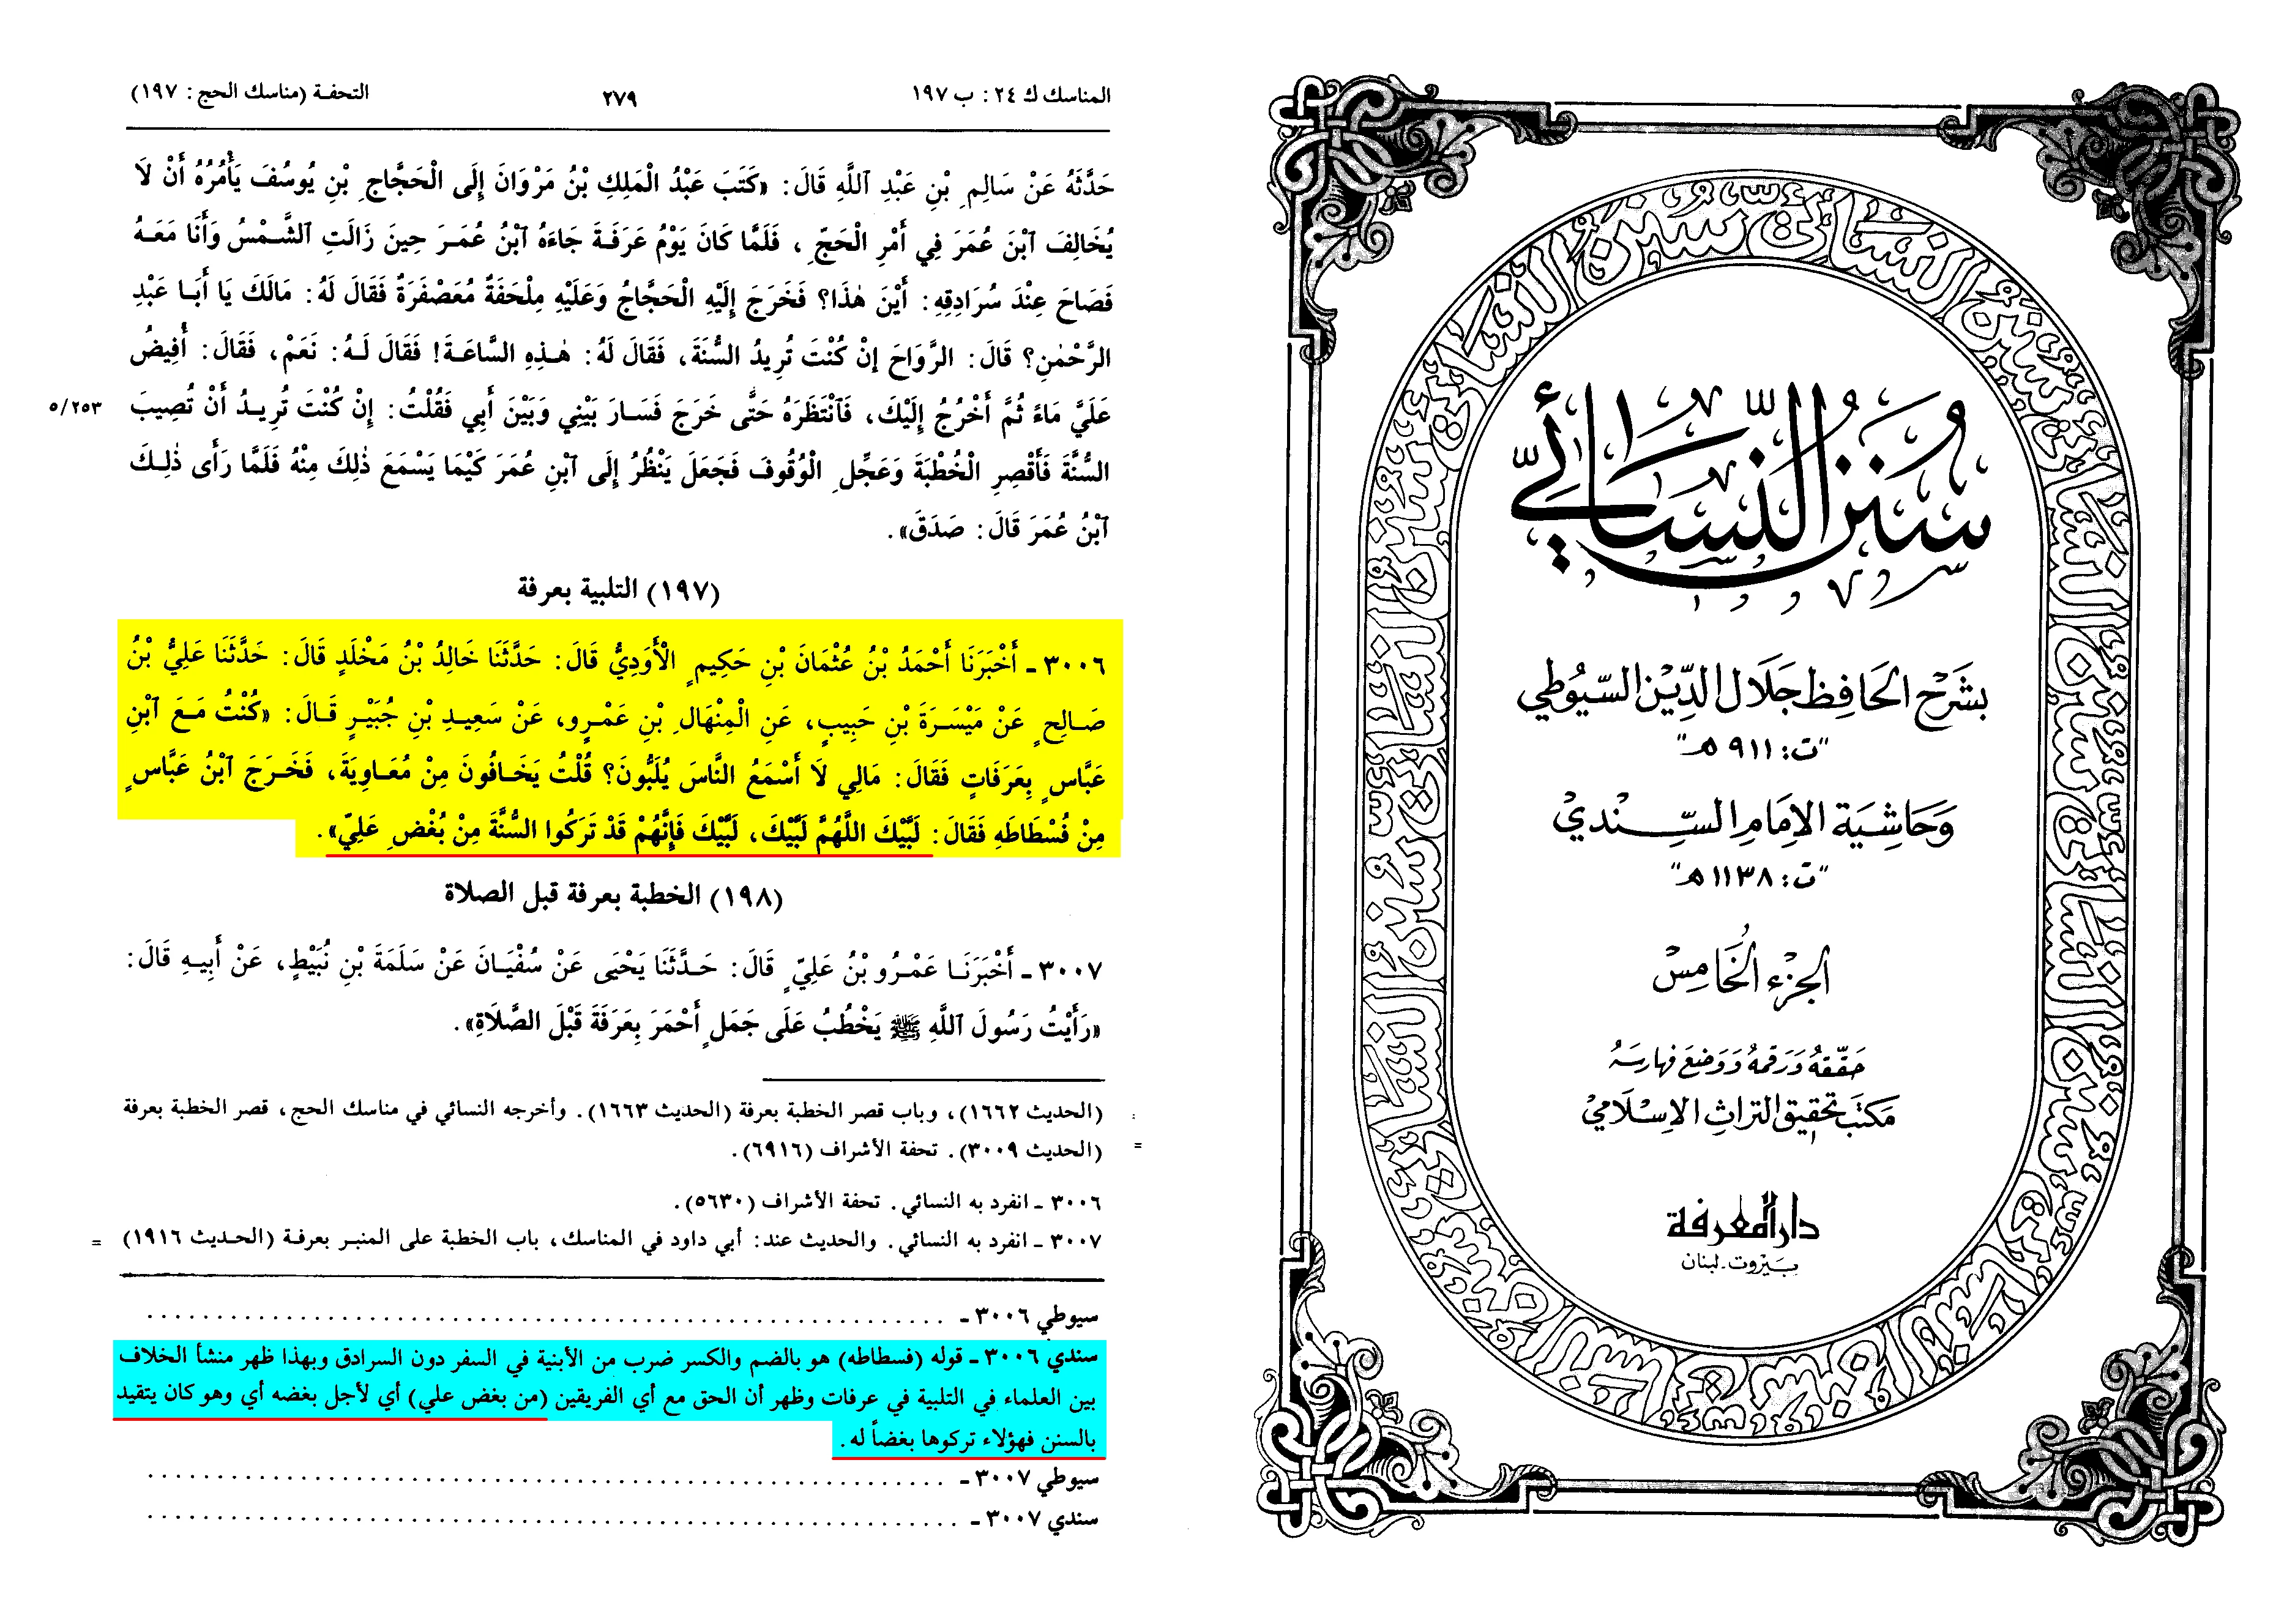 سنن النسائي
بشرح الحافظ جلال الدين السيوطي
"ت: ٩١١ هـ"
وحاشية الإمام السندي
"ت: ١١٣٨ هـ"
الجزء الخامس
حققه ورقمه ووضع فهارسه
مكتب تحقيق التراث الإسلامي
دار المعرفة
بيروت - لبنان
المناسك ك ٢٤: ب ١٩٧
٢٧٩
التحفة (مناسك الحج: ١٩٧)
حَدَّثَهُ عَنْ سَالِمِ بْنِ عَبْدِ ٱللَّهِ قَالَ: «كَتَبَ عَبْدُ الْمَلِكِ بْنُ مَرْوَانَ إِلَى الْحَجَّاجِ بْنِ يُوسُفَ يَأْمُرُهُ أَنْ لَا
يُخَالِفَ ٱبْنَ عُمَرَ فِي أَمْرِ الْحَجِّ، فَلَمَّا كَانَ يَوْمُ عَرَفَةَ جَاءَهُ ٱبْنُ عُمَرَ حِينَ زَالَتِ الشَّمْسُ وَأَنَا مَعَهُ
فَصَاحَ عِنْدَ سُرَادِقِهِ: أَيْنَ هٰذَا؟ فَخَرَجَ إِلَيْهِ الْحَجَّاجُ وَعَلَيْهِ مِلْحَفَةٌ مُعَصْفَرَةٌ فَقَالَ لَهُ: مَالَكَ يَا أَبَا عَبْدِ
الرَّحْمٰنِ؟ قَالَ: الرَّوَاحَ إِنْ كُنْتَ تُرِيدُ السُّنَّةَ، فَقَالَ لَهُ: هٰذِهِ السَّاعَةَ! فَقَالَ لَهُ: نَعَمْ، فَقَالَ: أُفِيضُ
عَلَيَّ مَاءً ثُمَّ أَخْرُجُ إِلَيْكَ، فَٱنْتَظَرَهُ حَتَّى خَرَجَ فَسَارَ بَيْنِي وَبَيْنَ أَبِي فَقُلْتُ: إِنْ كُنْتَ تُرِيدُ أَنْ تُصِيبَ
٥/٢٥٣
السُّنَّةَ فَأَقْصِرِ الْخُطْبَةَ وَعَجِّلِ الْوُقُوفَ فَجَعَلَ يَنْظُرُ إِلَى ٱبْنِ عُمَرَ كَيْمَا يَسْمَعَ ذٰلِكَ مِنْهُ فَلَمَّا رَأَى ذٰلِكَ
ٱبْنُ عُمَرَ قَالَ: صَدَقَ».
(١٩٧) التلبية بعرفة
٣٠٠٦ - أَخْبَرَنَا أَحْمَدُ بْنُ عُثْمَانَ بْنِ حَكِيمٍ الْأَوْدِيُّ قَالَ: حَدَّثَنَا خَالِدُ بْنُ مَخْلَدٍ قَالَ: حَدَّثَنَا عَلِيُّ بْنُ
صَالِحٍ عَنْ مَيْسَرَةَ بْنِ حَبِيبٍ، عَنِ الْمِنْهَالِ بْنِ عَمْرٍو، عَنْ سَعِيدِ بْنِ جُبَيْرٍ قَالَ: «كُنْتُ مَعَ ٱبْنِ
عَبَّاسٍ بِعَرَفَاتٍ فَقَالَ: مَالِي لَا أَسْمَعُ النَّاسَ يُلَبُّونَ؟ قُلْتُ يَخَافُونَ مِنْ مُعَاوِيَةَ، فَخَرَجَ ٱبْنُ عَبَّاسٍ
مِنْ فُسْطَاطِهِ فَقَالَ: لَبَّيْكَ اللَّهُمَّ لَبَّيْكَ، لَبَّيْكَ فَإِنَّهُمْ قَدْ تَرَكُوا السُّنَّةَ مِنْ بُغْضِ عَلِيٍّ».
(١٩٨) الخطبة بعرفة قبل الصلاة
٣٠٠٧ - أَخْبَرَنَا عَمْرُو بْنُ عَلِيٍّ قَالَ: حَدَّثَنَا يَحْيَى عَنْ سُفْيَانَ عَنْ سَلَمَةَ بْنِ نُبَيْطٍ، عَنْ أَبِيهِ قَالَ:
«رَأَيْتُ رَسُولَ ٱللَّهِ ﷺ يَخْطُبُ عَلَى جَمَلٍ أَحْمَرَ بِعَرَفَةَ قَبْلَ الصَّلَاةِ».
(الحديث ١٦٦٢)، وباب قصر الخطبة بعرفة (الحديث ١٦٦٣). وأخرجه النسائي في مناسك الحج، قصر الخطبة بعرفة
= (الحديث ٣٠٠٩). تحفة الأشراف (٦٩١٦).
٣٠٠٦ - انفرد به النسائي. تحفة الأشراف (٥٦٣٠).
٣٠٠٧ - انفرد به النسائي. والحديث عند: أبي داود في المناسك، باب الخطبة على المنبر بعرفة (الحديث ١٩١٦) =
سيوطي ٣٠٠٦ - . . . . . . . . . . . . . . . . . . . .
سندي ٣٠٠٦ - قوله (فسطاطه) هو بالضم والكسر ضرب من الأبنية في السفر دون السرادق وبهذا ظهر منشأ الخلاف
بين العلماء في التلبية في عرفات وظهر أن الحق مع أي الفريقين (من بغض علي) أي لأجل بغضه أي وهو كان يتقيد
بالسنن فهؤلاء تركوها بغضاً له.
سيوطي ٣٠٠٧ - . . . . . . . . . . . . . . . . . . . .
سندي ٣٠٠٧ - . . . . . . . . . . . . . . . . . . . .